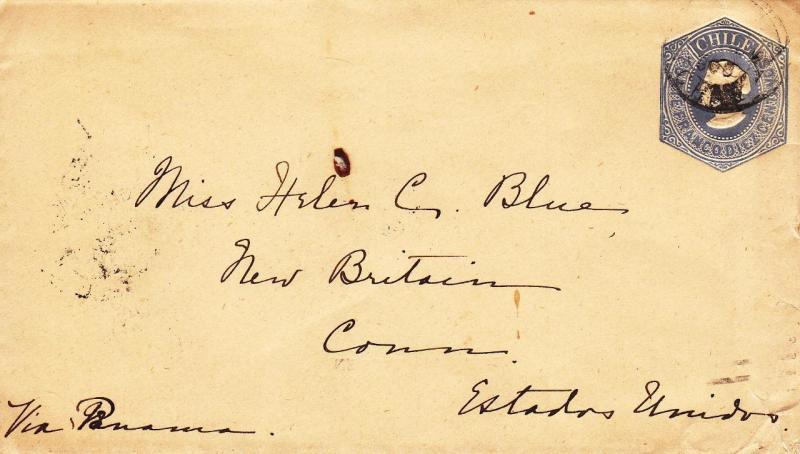 CHILE
FRANCO DIEZ CENT.
Miss Helen C. Blue
New Britain
Conn.
Estados Unidos.
Via Panama.